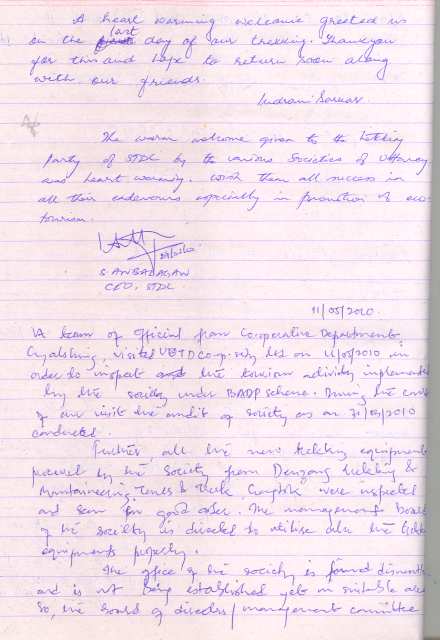 A heart warming welcome greeted us
on the last day of our trekking. Thankyou
for this and hope to return soon along
with our friends.
Indrani Sarkar.
The warm welcome given to the trekking
party of STDC by the various Societies of Uttarey
was heart warming. Wish them all success in
all their endeavours especially in promotion of eco
tourism.
S. ANBALAGAN
CEO, STDC
11/05/2010.
A team of Official from Cooperative Department,
Gyalshing, visited UETD Co-p Society Ltd on 11/05/2010 in
order to inspect the tourism activity implemented
by the society under BADP scheme. During the
of our visit the audit of society as on 31/03/2010
conducted.
Further, all the new trekking equipments
by the Society from Denzong trekking &
Mountaineering, Tents & Trek, Gangtok were inspected
and seen in good order. The management board
of the society is directed to utilise also the
equipments properly.
The office of the society is found
and is not being established yet in suitable
So, the board of directors/management committee